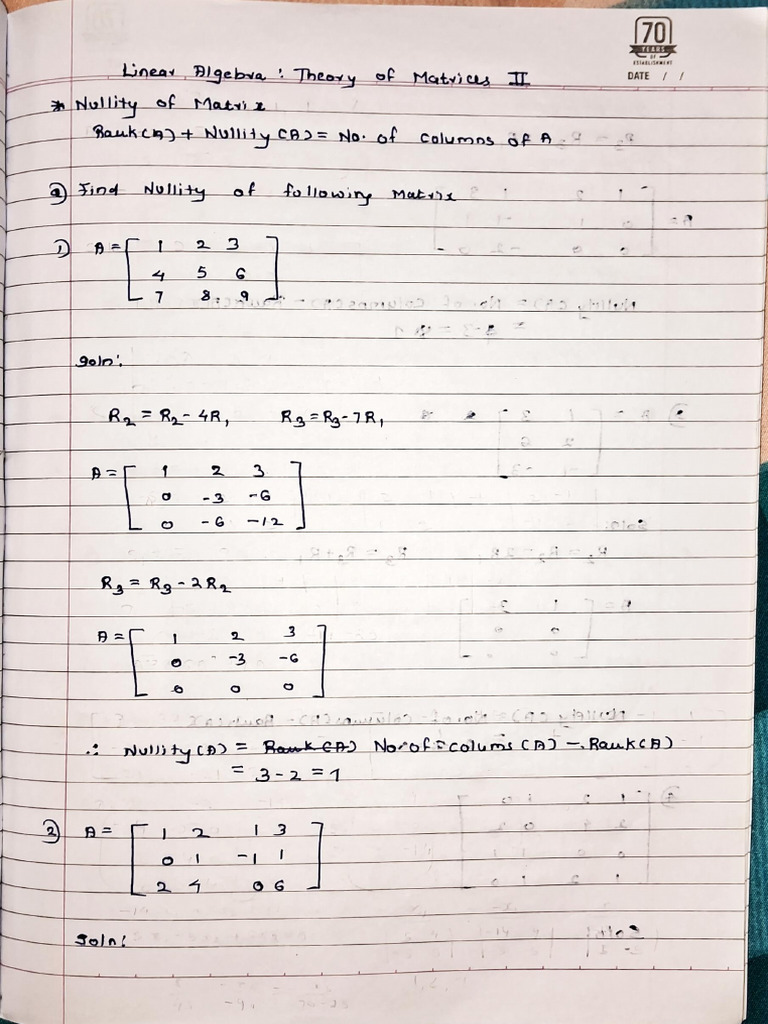 70
YEARS
OF
ESTABLISHMENT
DATE / /
Linear Algebra : Theory of Matrices II
* Nullity of Matrix
Rank(A) + Nullity (A) = No. of columns of A
Q) Find Nullity of following Matrix
1) A = [ 1 2 3
4 5 6
7 8 9 ]
Soln:
R2 = R2 - 4R1 R3 = R3 - 7R1
A = [ 1 2 3
0 -3 -6
0 -6 -12 ]
R3 = R3 - 2R2
A = [ 1 2 3
0 -3 -6
0 0 0 ]
∴ Nullity (A) = Rank(A) No. of = colums (A) - Rank(A)
= 3 - 2 = 1
2) A = [ 1 2 1 3
0 1 -1 1
2 4 0 6 ]
Soln: